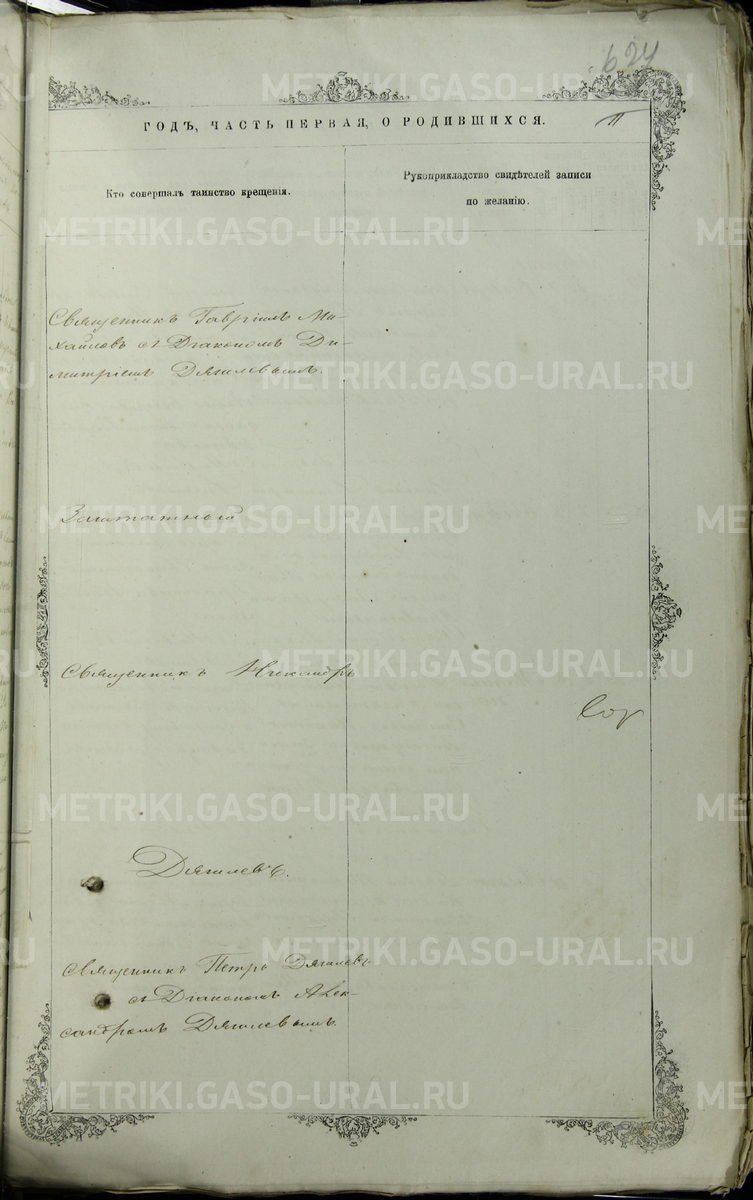 624
ГОДЪ, ЧАСТЬ ПЕРВАЯ, О РОДИВШИХСЯ.
Кто совершалъ таинство крещенія.
Рукоприкладство свидѣтелей записи
по желанію.
Священникъ Гавріилъ Ми-
хайловъ съ Діакономъ Ди-
митріемъ Дягилевымъ.
Заштатный
Священникъ Никандръ
Дягилевъ.
Священникъ Петръ Дягилевъ
съ Діакономъ Алек-
сандромъ Дягилевымъ.
METRIKI.GASO-URAL.RU